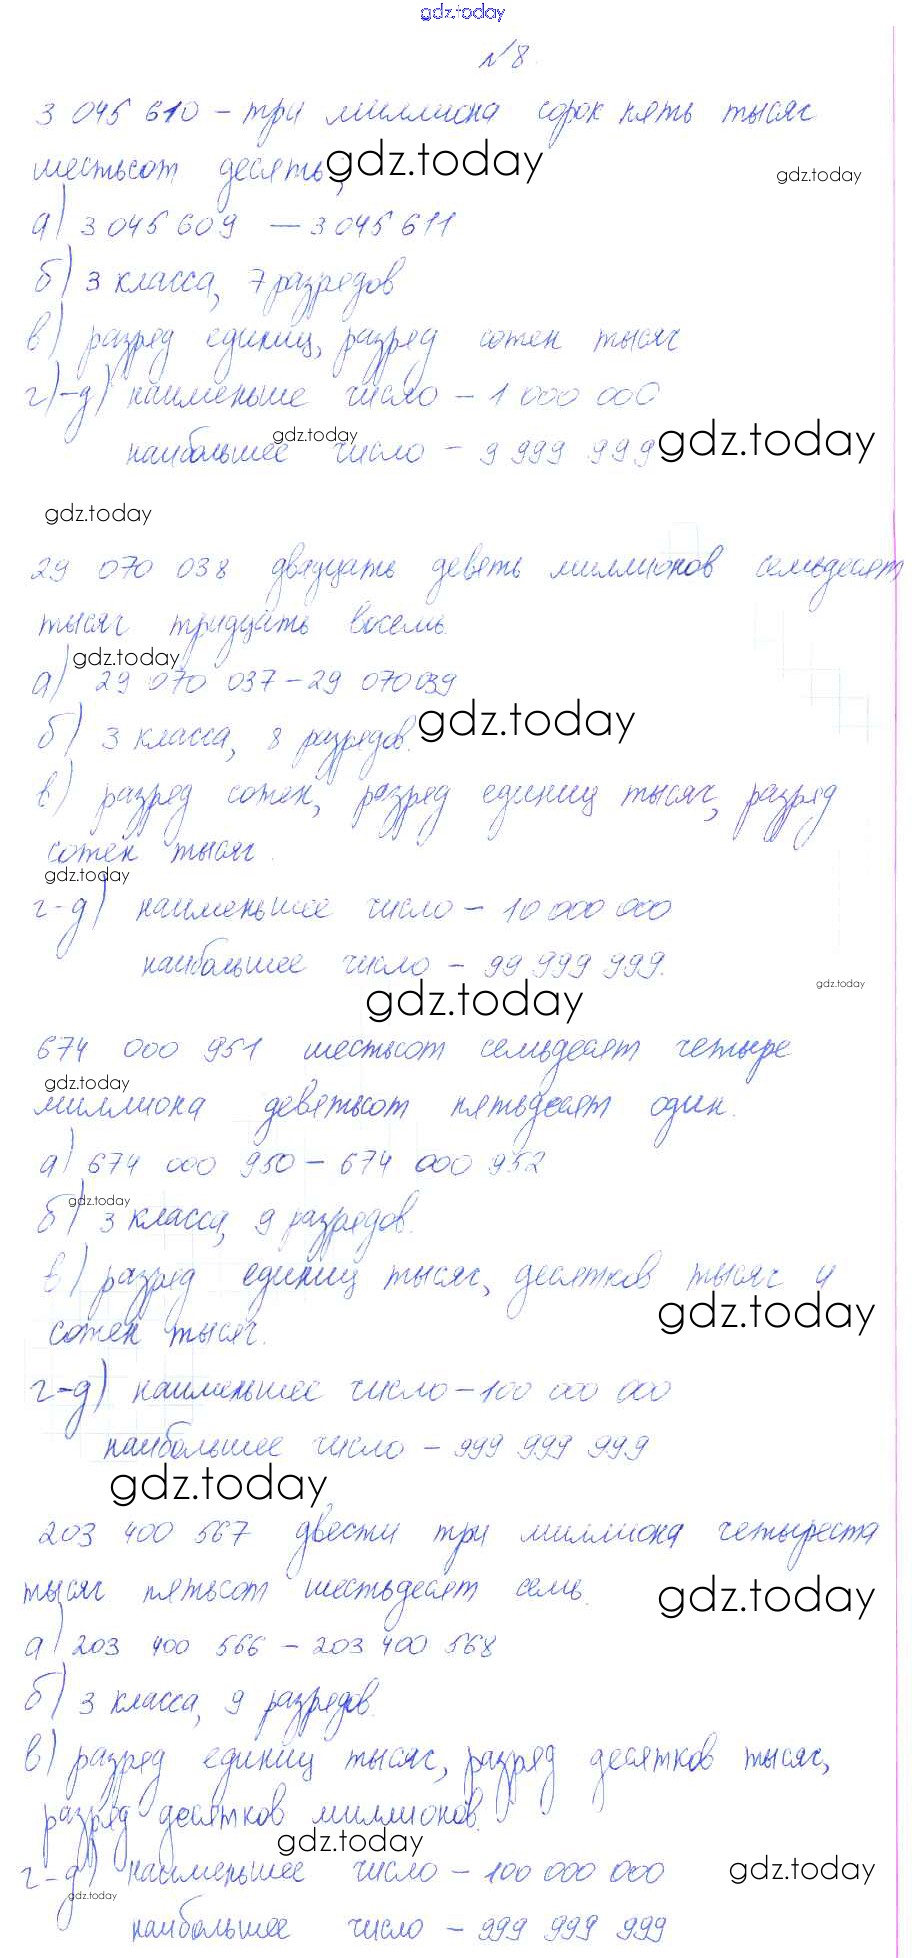 gdz.today
№8.
3 045 610 - три миллиона сорок пять тысяч
шестьсот десять; gdz.today
gdz.today
а) 3 045 609 — 3 045 611
б) 3 класса, 7 разредов
в) разряд единиц, разряд сотен тысяч
г)-д) наименьше число - 1 000 000
gdz.today
наибольшее число - 9 999 999 gdz.today
gdz.today
29 070 038 двадцать девять миллионов семьдесят
тысяч тридцать восемь.
gdz.today
а) 29 070 037 - 29 070 039
б) 3 класса, 8 разредов. gdz.today
в) разряд сотен, разряд единиц тысяч, разряд
сотен тысяч.
gdz.today
г-д) наименьшее число - 10 000 000
наибольшее число - 99 999 999.
gdz.today
gdz.today
674 000 951 шестьсот семьдесят четыре
gdz.today
миллиона девятьсот пятьдесят один.
а) 674 000 950 - 674 000 952
gdz.today
б) 3 класса, 9 разредов.
в) разряд единиц тысяч, десятков тысяч и
gdz.today
сотен тысяч.
г-д) наименьшее число - 100 000 000
наибольшее число - 999 999 999
gdz.today
203 400 567 двести три миллиона четыреста
тысяч пятьсот шестьдесят семь. gdz.today
а) 203 400 566 - 203 400 568
б) 3 класса, 9 разредов.
в) разряд единиц тысяч, разряд десятков тысяч,
разряд десятков миллионов.
gdz.today
г-д) наименьшее число - 100 000 000 gdz.today
gdz.today
наибольшее число - 999 999 999